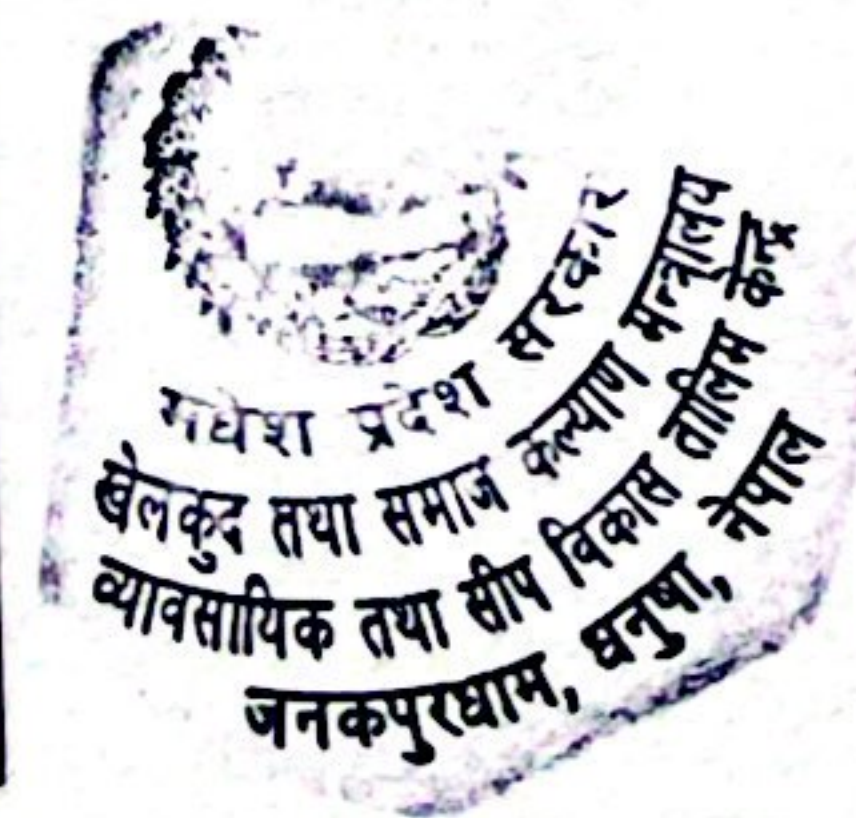 मधेश प्रदेश सरकार
खेलकुद तथा समाज कल्याण मन्त्रालय
व्यावसायिक तथा सीप विकास तालिम केन्द्र
जनकपुरधाम, धनुषा, नेपाल